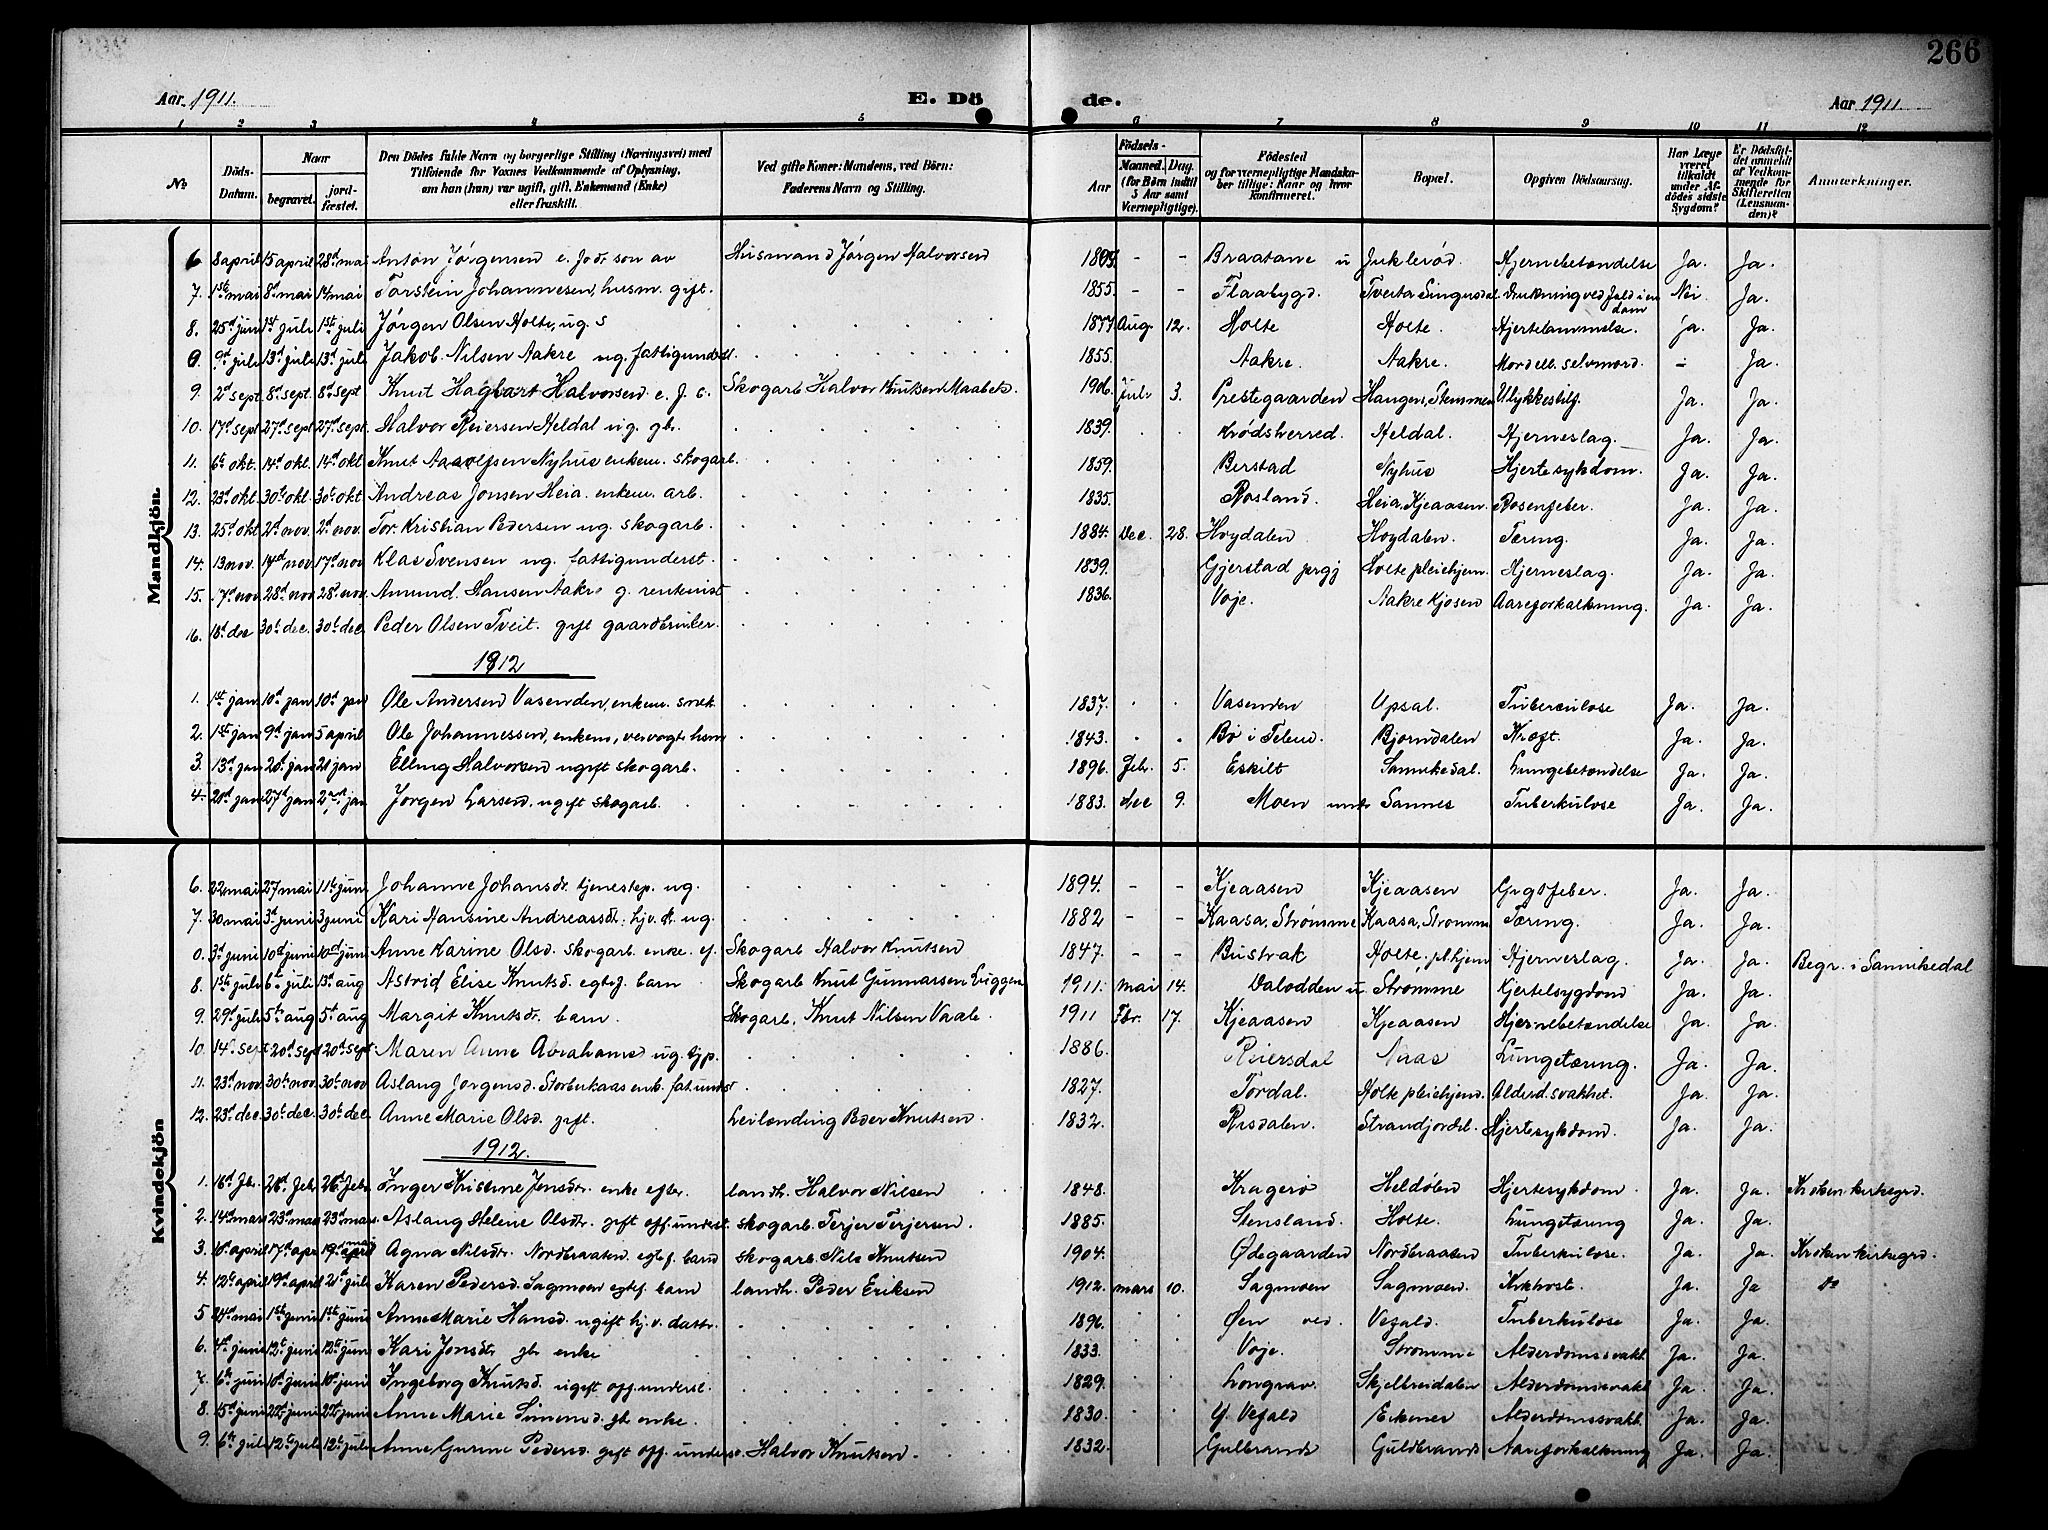 266
Aar 1911. E. Dö de. Aar 1911.
1 2 3 4 5 6 7 8 9 10 11 12
No Döds-Datum. Naar begravet. jord-fæstet. Den Dödes fulde Navn og borgerlige Stilling (Næringsvei) med Tilföiende for Voxnes Vedkommende af Oplysning, om han (hun) var ugift, gift, Enkemand (Enke) eller fraskilt. Ved gifte Koner: Mandens, ved Börn: Faderens Navn og Stilling. Födsels- Aar Maaned. Dag. (for Börn indtil 5 Aar samt Værnepligtige). Födested og for værnepligtige Mandskaber tillige: Naar og hvor konfirmeret. Bopæl. Opgiven Dödsaarsag. Har Læge været tilkaldt under Afdödes sidste Sygdom? Er Dödsfaldet anmeldt af Vedkommende for Skifteretten (Lensmanden)? Anmærkninger.
Mandkjön
6 8 april 15 april 28d mai Anton Jørgensen e. fodt son av Husmand Jørgen Halvorsen - - Braatane u Juklerød. Hjernebetændelse Ja. Ja.
7. 1ste mai 8d mai 14 mai Torstein Johannesen, husm. gift. 1855. - - Flaabygd. Nei Ja.
8. 25d juni 1st juli 1ste juli Jørgen Olsen Holte, ug. s 1877 Aug. 12. Holte Holte. Hjertelammelse. ja. Ja.
0 9d juli 13d juli 13d juli Jakob Nilsen Aakre ug. fattigunderst. 1855. Aakre. Aakre. Mord ell. selvmord. - Ja.
9. 2d sept. 8d sept. 8d sept Knut Hagbart Halvorsen e. f. s. Skogarb. Halvor Knutsen Maabek. 1906. Juli 3. Prestegaarden Haugen, Stemmen Ulykkestilf. Ja. Ja.
10. 17d sept 27d sept 27d sept. Halvor Reiersen Heldal ug. gbr. 1839. Krødsherred. Heldal. Hjerneslag. Ja. Ja.
11. 6te okt. 14d okt. 14d okt Knut Aasolfsen Nyhus enkem. skogarb. 1859. Berstad Nyhus Hjertesykdom. Ja. Ja.
12. 23d okt. 30te okt. 30te okt Andreas Jonsen Heia. enkem. arb. 1835. Rosland. Heia, Kjeaasen. Rosenfeber. Ja. Ja.
13. 25d okt 2d nov. 2d nov. Tor Kristian Pedersen ug. skogarb. 1884. Dec. 28. Høydalen. Høydalen. Tæring. Ja. Ja.
14. 13 nov. 17d nov 17d nov Klas Svensen ug. fattigunderst. 1839. Gjerstad prgj Holte pleiehjem. Hjerneslag. Ja. Ja.
15. 17d nov. 28d nov 28d nov. Amund Hansen Aakre g. rentenist 1836. Voje. Aakre Kjosen Aareforkalkning. Ja. Ja.
16. 18d dec 30te dec. 30te dec. Peder Olsen Tveit. gift gaardbruker.
1912
1. 1ste jan 10d jan 10d jan Ole Andersen Vasenden, enkem. snek. 1837. Vasenden Upsal. Tuberculose Ja. Ja.
2. 1ste jan 9d jan 5 april Ole Johannessen, enkem, 1843. Bø i Telem. Bjorndalen Kræft. Ja. Ja.
3. 13d jan 20d jan 21 jan Elling Halvorsen ugift skogarb. 1896. Febr. 5. Eskilt Sannikedal. Lungebetændelse Ja. Ja.
4. 20d jan 27d jan Jørgen Larsen, ugift skogarb. 1883. Dec 9. Moen under Sannes Tuberkulose Ja. Ja.
Kvindekjön
6. 22 mai 27 mai 11te juni Johanne Johansdr. tjenestep. ug. 1894. - - Kjeaasen Kjeaasen Gigtfeber. Ja. Ja.
7. 30 mai 3d juni 3 juni Kari Hansine Andreassdr. hjv. dt. ug. 1882 - - Kaasa, Strømme Kaasa, Strømme Tæring. Ja. Ja.
0. 3d juni 10d juni 10d juni Anne Karine Olsd. skogarb. enke. ef. Skogarb. Halvor Knutsen 1847. - - Bustrak Holte. pl.hjem Hjerneslag. Ja. Ja. Begr. i Sannikedal
8. 1ste juli 6te juli 13d aug Astrid Elise Knutsd. egtef. barn Skogarb. Knut Gunnarssen Luggen 1911. mai 14. Valodden u. Strømme Kjertelsygdom Ja. Ja.
9. 29d juli 5te aug 5te aug Margit Knutsdr. barn. Skogarb. Knut Nilsen Vaale. 1911 Fbr. 17. Kjeaasen Kjeaasen Hjernebetændelse Ja. Ja.
10. 14d sept 20d sept 20d sept Maren Anne Abrahamsd ug. tjp. 1886. Reiersdal Naas Lungetæring. Ja. Ja.
11. 23d nov. 30te nov. 30te nov Aslaug Jørgensd. Storberkaas enk. fat. undst 1827. Tordal. Holte pleiehjem. Alderd. svakhet. Ja. Ja.
12. 23d dec. 30te dec. 30te dec. Anne Marie Olsd. gift. Leilænding Peder Knutsen 1832. Risdalen. Strandfjordel. Hjertesykdom. Ja. Ja.
1912.
1. 16d fbr. 26d febr 26d febr. Inger Kristine Jensdr. enke efter. landh. Halvor Nilsen 1848. Kragerø Heldølen Hjertesykdom. Ja. Ja. Kroken kirkegrd.
2. 14d mars 23d mars 23d mars. Aslaug Helene Olsdr. gift off. underst. skogarb. Terjer Terjersen. 1885. Stensland. Holte. Lungetæring Ja. Ja.
3. 10d april 17d apr 19d mai Agna Nilsdr. Nordbraaten. egtef. barn skogarb. Nils Knutsen 1904. Ødegaarden Nordbraaten Tuberkulose. Ja. Ja. Kroken kirkegrd.
4. 12te april 19d april 21d juli Karen Pedersd. Sagmoen egtef. barn landh. Peder Eriksen 1912. mars 10. Sagmoen Sagmoen. Kikhoste. Ja. Ja do
5 24d mai 1ste juni 1ste juni Anne Marie Hansd. ugift hj.v. dattr. 1896. Øen ved Vefald. Tuberkulose Ja. Ja.
6. 4de juni 12te juni 12te juni Kari Jonsdr gbr enke 1833. Voje. Strømme Alderdomssvakh. Ja. Ja.
7. 6te juni 10d juni 10d juni Ingeborg Knutsd. ugift off. underst. 1829. Longrav. Skjelbreidalen Alderdomssvakh. Ja. Ja.
8. 15d juni 22d juni 22d juni Anne Marie Simonsd. gbr enke. 1830. Vefald Eikener Alderdomssvakh. Ja. Ja.
9. 6te juli 12te juli 12te juli Anne Gurine Pedersd. gift off. underst. Halvor Knutsen. 1832. Gulbrands Guldbrands Aareforkalkning Ja. Ja.